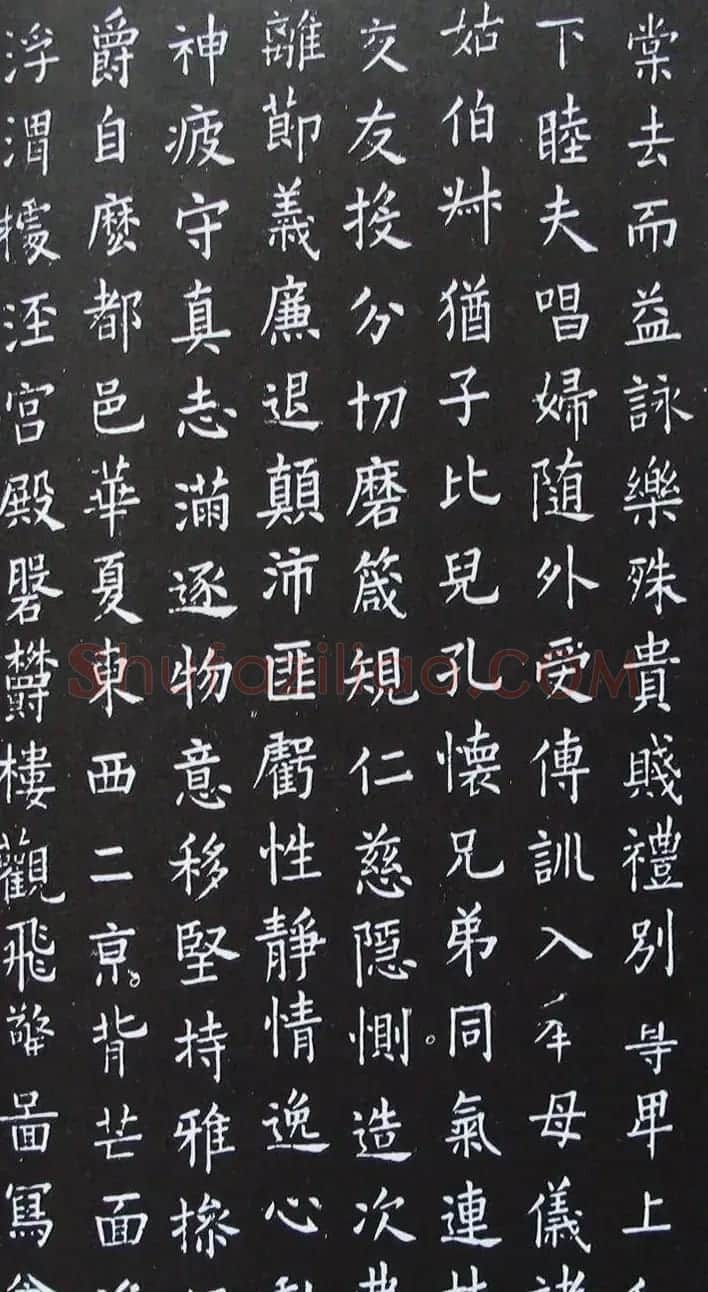 棠去而益詠樂殊貴賤禮別尊卑上
下睦夫唱婦隨外受傅訓入奉母儀
姑伯叔猶子比兒孔懷兄弟同氣連
交友投分切磨箴規仁慈隱惻。造次
離節義廉退顛沛匪虧性靜情逸心
神疲守真志滿逐物意移堅持雅操
爵自麼都邑華夏東西二京。背芒面
浮渭據涇宮殿磐欝樓觀飛驚啚寫
Shufaziliao.COM